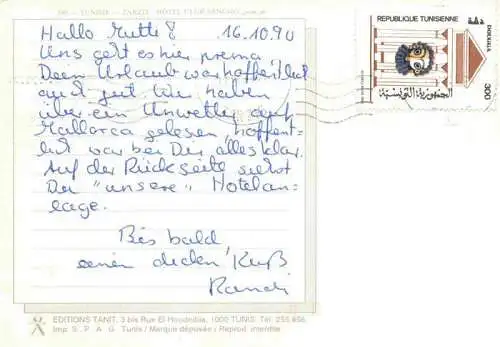 Hallo Mutti! 16.10.90
Uns geht es hier prema
Dein Urlaub war hoffentlich
auch gut. Wir haben
über ein Unwetter auf
Mallorca gelesen, hoffent-
lich war bei Dir alles klar.
Auf der Rückseite siehst
Du "unsere" Hotelan-
lage.
Bis bald
einen dicken Kuß
REPUBLIQUE TUNISIENNE
300
الجمهورية التونسية
EDITIONS TANIT, 3 bis Rue El Houdaibia, 1000 TUNIS Tél. 255.656
Imp. S. P. A. G. Tunis / Marque déposée / Reprod. interdite